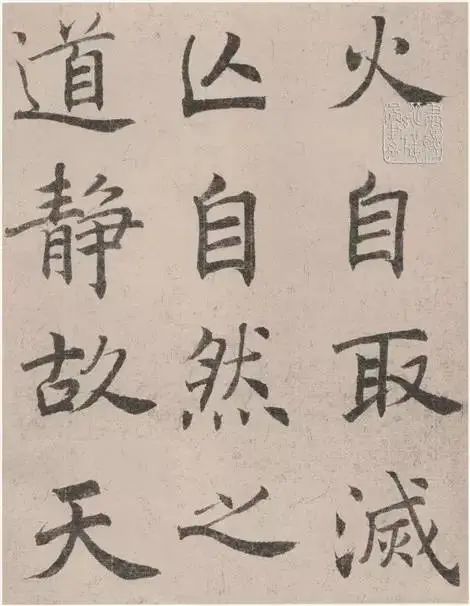 火自取滅
亾自然之
道静故天